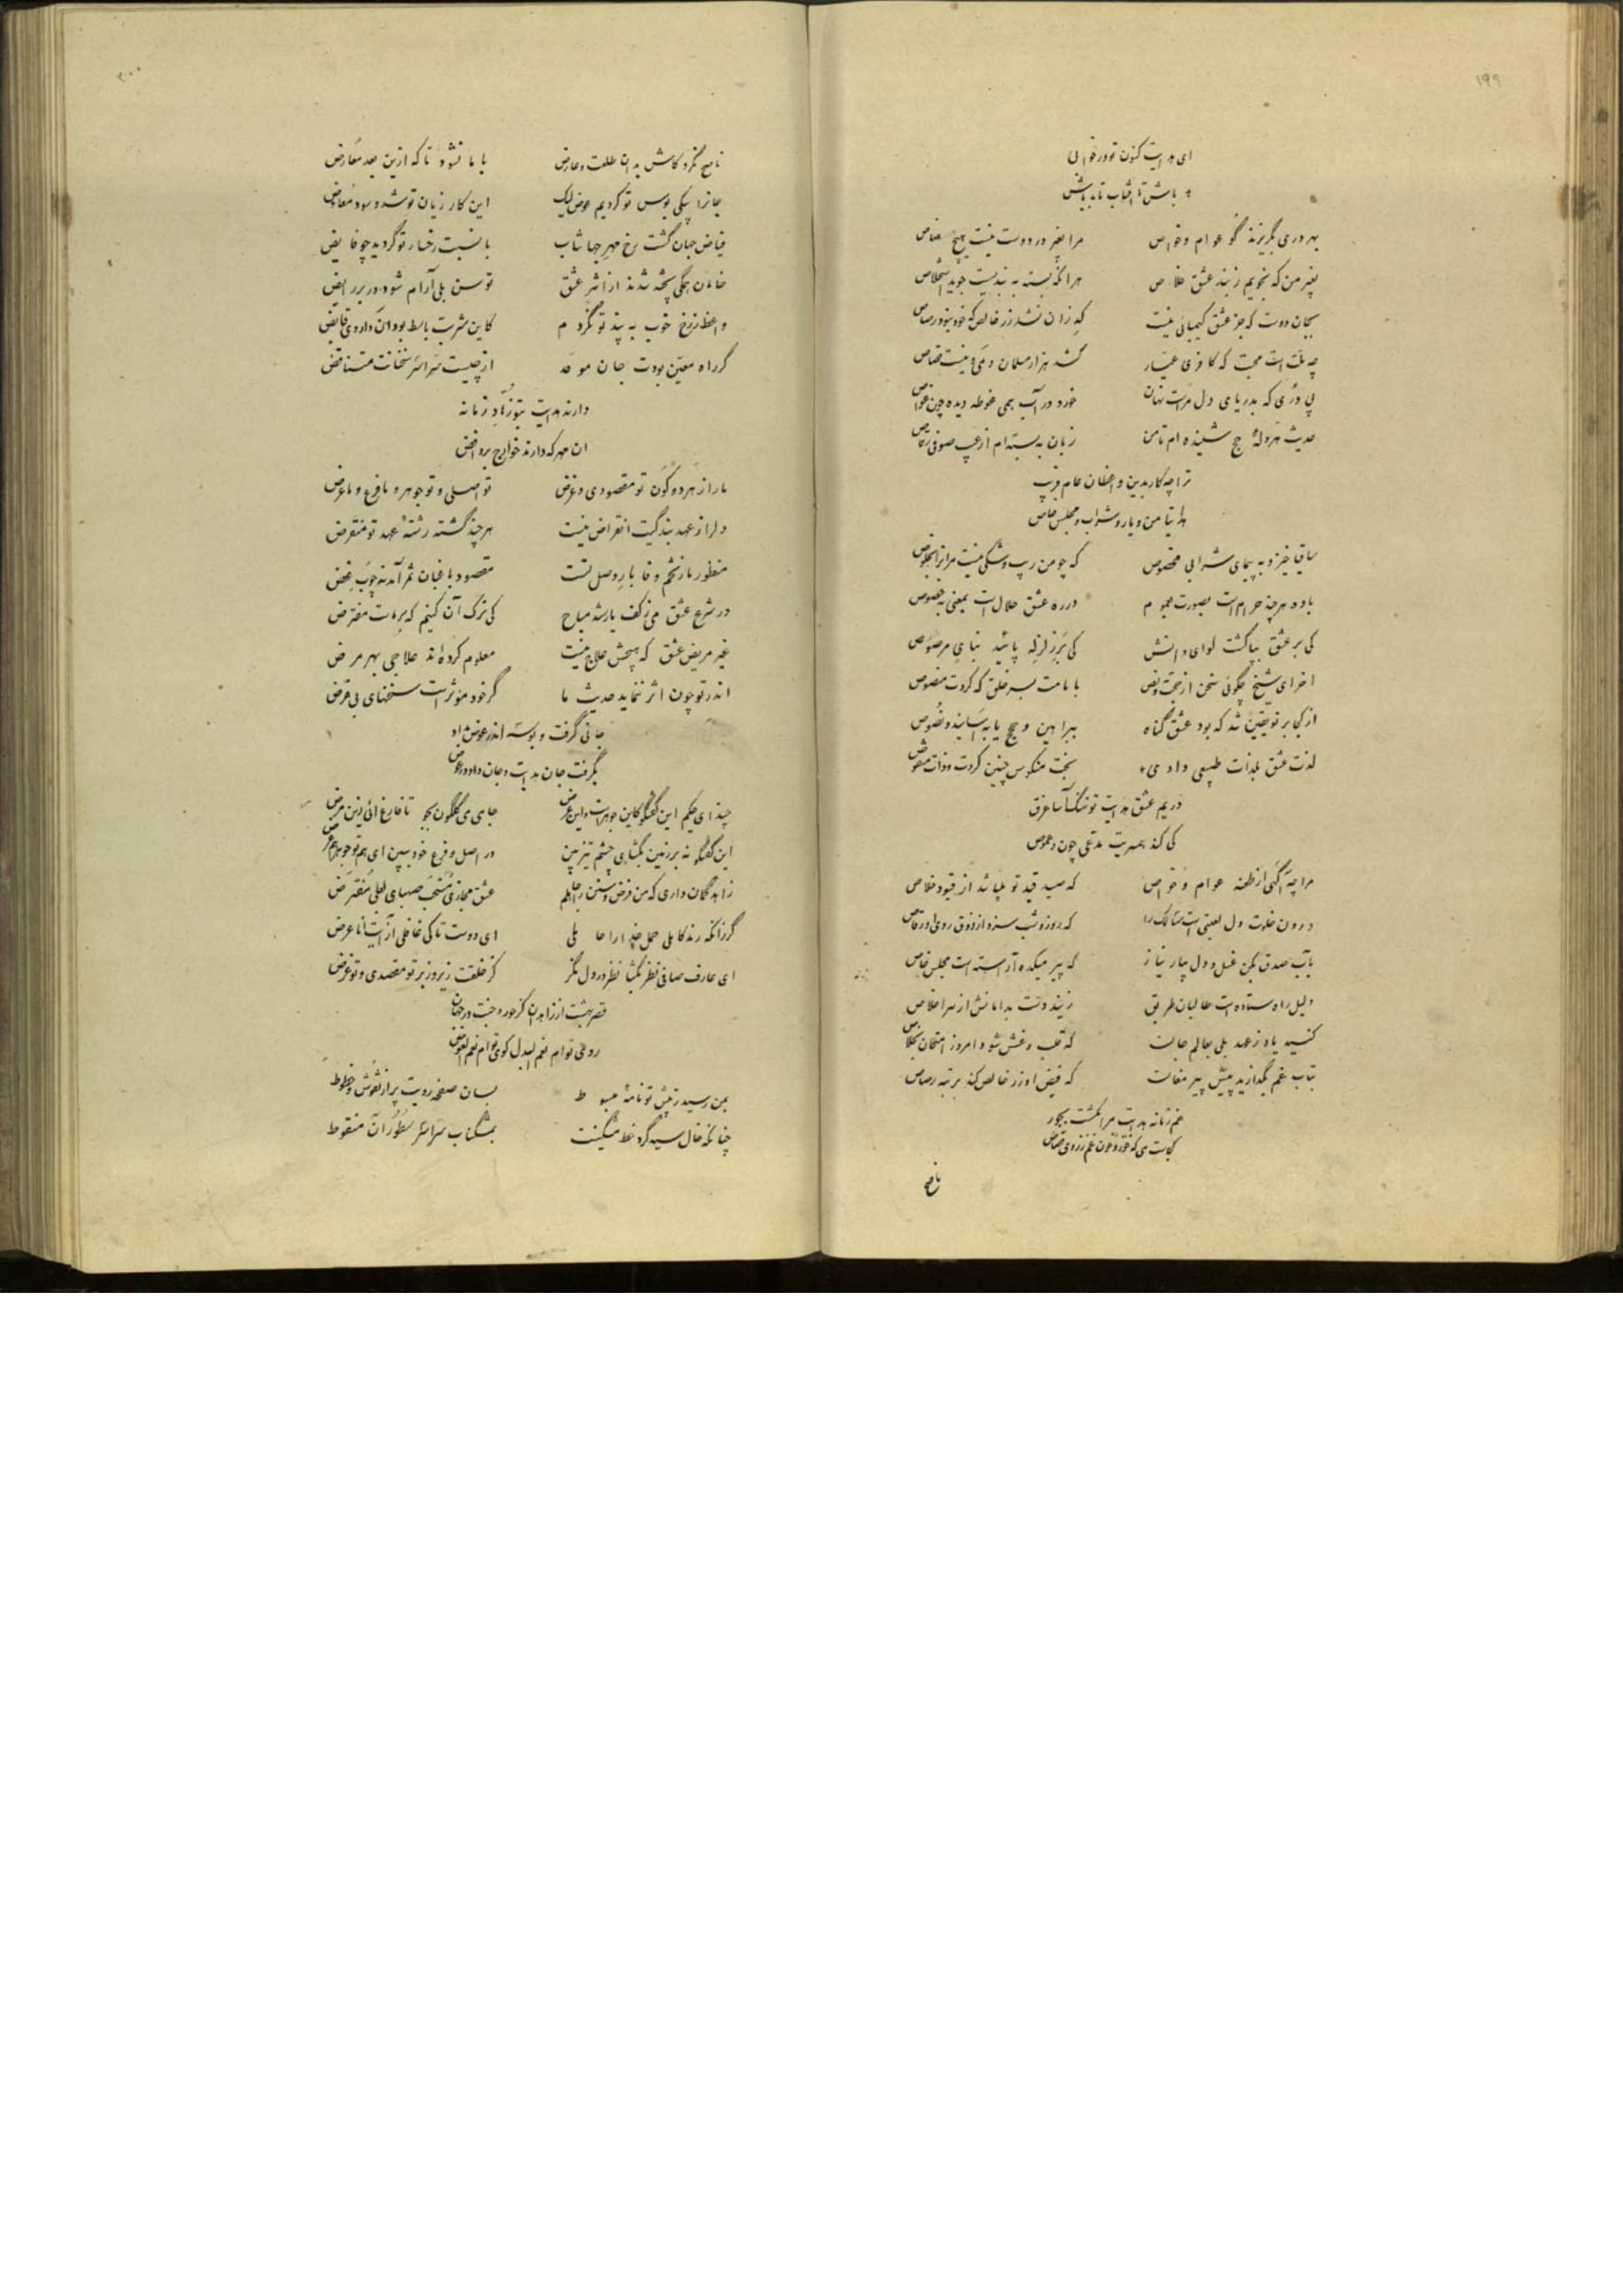 ۱۹۹
ای هدایت کنون تو در خوابی
باش تا آفتاب تابد باش
بهر دری بگریزند گو عوام و خواص مرا بغیر در دوست نیست هیچ مناص
بغیر من که نجویم ز بند عشق خلاص هرآنکه بسته به بندیست جوید استخلاص
بجان دوست که جز عشق کیمیائی نیست که زان شد زر خالص که خود نبود رصاص
چه ملت است محبت که کافری عیار کشد هزار مسلمان و نیست قصاص
پی دری که بدریای دل مراست نهان خورد در آب همی غوطه دیده چون غواص
حدیث هروله حج شنیده‌ام تا من زبان به بسته‌ام از عیب صوفی رقاص
ترا چکار بدین واعظان عام فریب
هدایتا من و یار و شراب و مجلس خاص
ساقیا خیز و به پیمای شرابی مخصوص که چو من نیست مرا
باده هرچند حرام است بصورت بعموم در ره عشق حلال است بمعنی بخصوص
کی بر عشق بپا گشت لوای دانش کی بر زلزله پائید بنای مرصوص
آخر ای شیخ چگوئی سخن از حجت و نص با مامت بسر خلق که کردت منصوص
از کجا بر تو یقین شد که بود عشق گناه ببراهین و حجج یا به اسانید و نصوص
لذت عشق بلذات طبیعی دادی بخت منکوس چنین کردت و ذات منقوص
در یم عشق هدایت تو نهنگ آسا غرق
کی کند همسریت مدعی چون دعموص
مرا چه آگهی از طعنه عوام و خواص که صید قید تو باشد از قیود خلاص
درون خلوت دل لعبتی است سالک را که روز و شب سزد از ذوق روی او رقاص
بآب صدق بکن غسل و دل بیار نیاز که پیر میکده آراسته است مجلس خاص
دلیل راه ستاده است طالبان طریق زنید دست بدامانش از سر اخلاص
کنید یاد ز عهد بلی بعالم حالت که قلب و غش شو و امروز امتحان
بتاب غم بگدازید پیش پیر مغان که فیض او زر خالص کند برتبه رصاص
غم زمانه هدایت مرا بکشت بجور
کجاست می که خورد خون غم ز روی قصاص
ناصح
۲۰۰
ناصح نگرد کاش بدان طلعت و عارض با ما نشود تا که ازین بعد معارض
جان را بیکی بوس تو کردیم عوض لیک این کار زیان تو شد و سود معاوض
فیاض جهان گشت رخ مهر جهانتاب با نسبت رخسار تو گردید چو فایض
خامان همگی پخته شدند از اثر عشق توسن بلی آرام شود در بر رایض
واعظ زرخ خوب به پند تو نگردم کاین شربت باسط بود آن داروی قابض
گر راه معین بودت جان موحد از چیست سراسر سخنانت متناقض
دارند هدایت بتو زهاد زمانه
آن مهر که دارند خوارج بروافض
ما را ز هر دو کون تو مقصودی و غرض تو اصلی و تو جوهر و ما فرع و ما عرض
دل را ز عهد بندگیت انقراض نیست هرچند گشته رشته عهد تو منقرض
منظور ما ز تخم وفا بار وصل تست مقصود باغبان ثمر آمد نه چوب غض
در شرع عشق می ز کف یار شد مباح کی ترک آن کنیم که بر ماست مفترض
غیر مریض عشق که هیچش علاج نیست معلوم کرده‌اند علاجی بهر مرض
اندر تو چون اثر ننماید حدیث ما گر خود مؤثر است سخنهای بی غرض
جانی گرفت و بوسه اندر عوض نداد
بگرفت جان هدایت و جان داد در عوض
چند ای حکیم این گفتگو کاین جوهرست و این عرض جای می گلگون بجو تا فارغ آئی زین مرض
این گفتگو نه بر زمین بگشای چشم تیز بین در اصل و فرع خود ببین ای هم تو جوهر هم عرض
زاهد گمان داری که من فرض و سنن را جاهلم عشق مجازی مستحب صهبای لعلی مفترض
گر زآنکه رند کاملی حمل خدا را حاملی ای دوست تا کی غافلی از آیت انا عرض
ای عارف صافی نظر بگشا نظر در دل نگر کز خلقت زیر و زبر تو مقصدی و تو غرض
قصر بهشت ارزاهدان کز حور و جنت در جهان
روی توام نعم البدل کوی توام نعم العوض
بمن رسید ز پیش تو نامه مبسوط بسان صفحه رویت پر از نقوش و خطوط
چنانکه خال سیه گرد خط مشگینت بمشگناب سراسر سطور آن منقوط